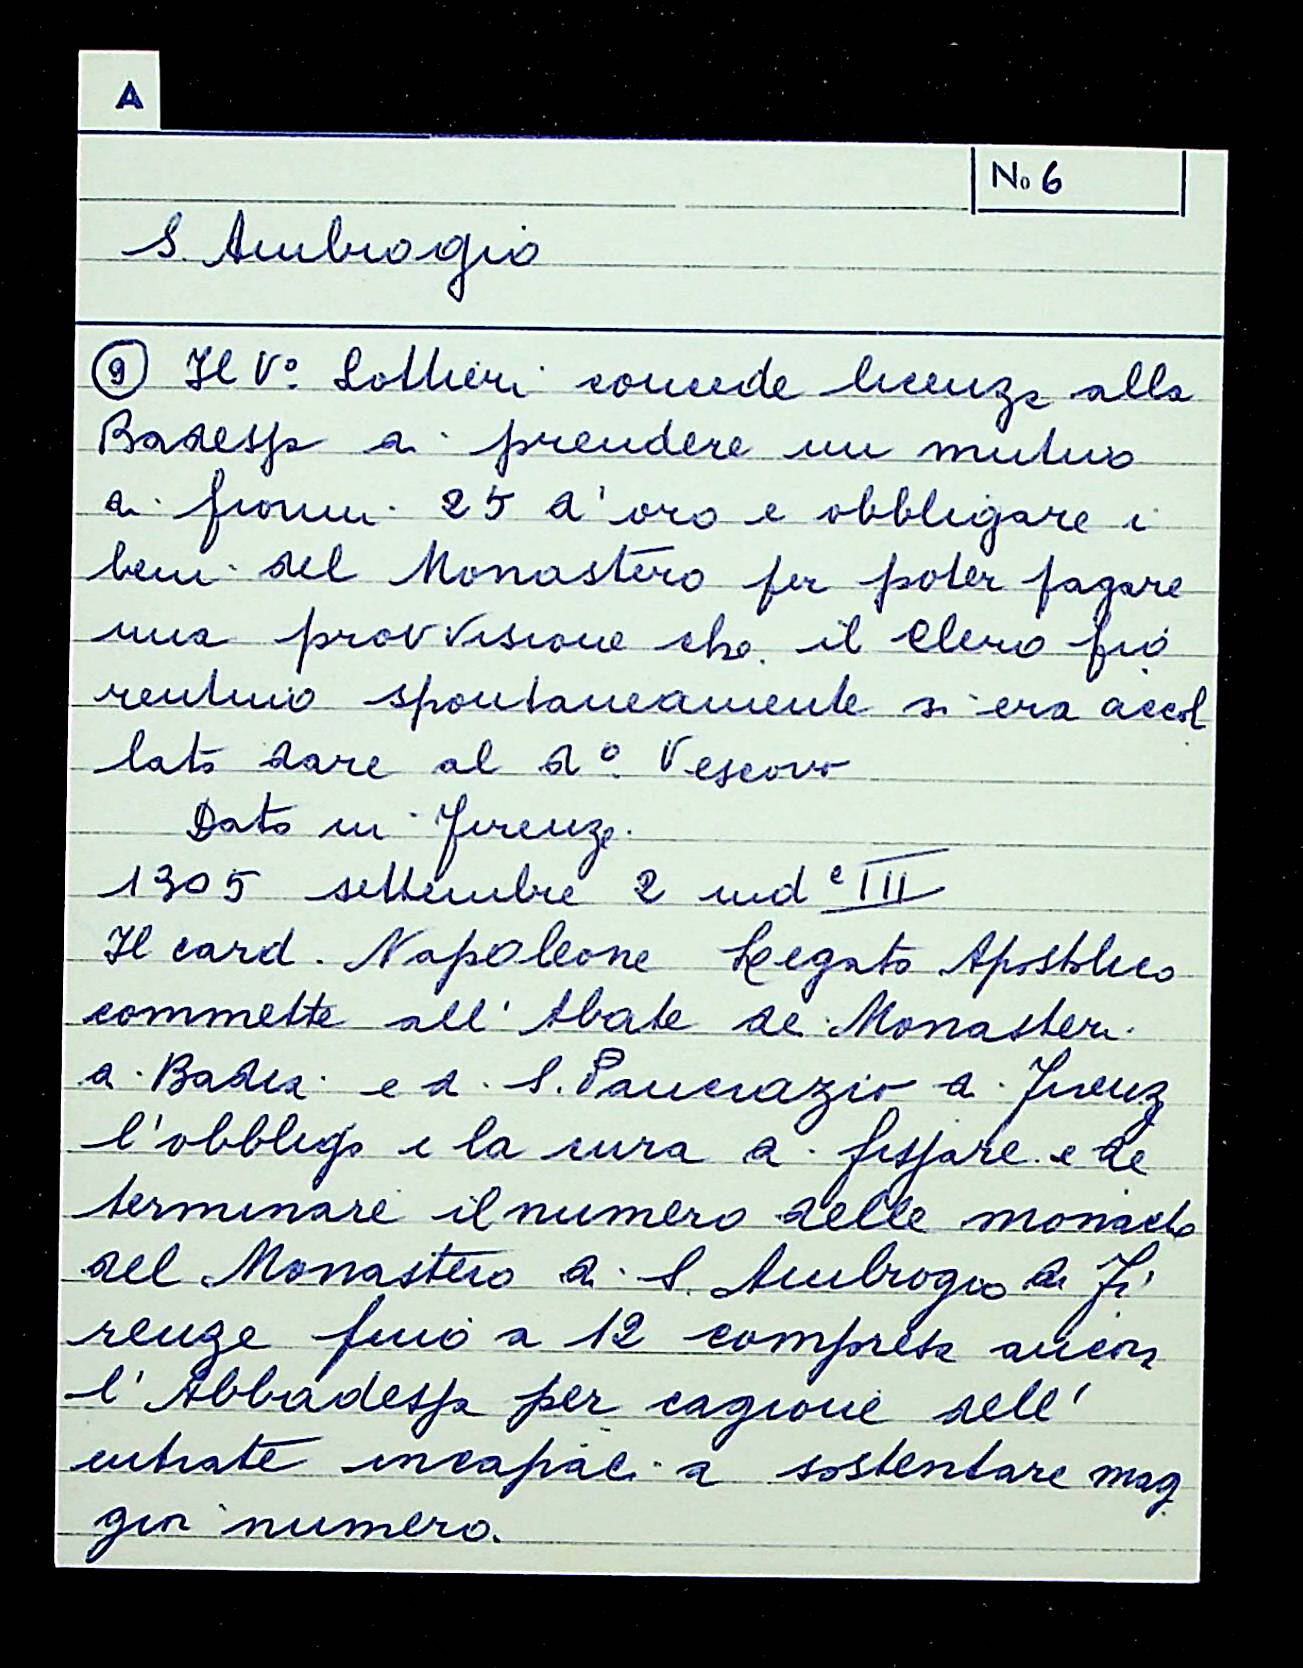 A
No 6
S. Ambrogio
9 Il Vo. Lottieri concede licenza alla
Badessa di prendere un mutuo
di fiorini 25 d'oro e obbligare i
beni del Monastero per poter pagare
una provvisione che il Clero fio
rentino spontaneamente si era accol
lato dare al do. Vescovo
Dato in Firenze.
1305 settembre 2 inde III
Il card. Napoleone Legato Apostolico
commette all'Abate dei Monasteri
di Badia e di S. Pancrazio di Firenz
l'obbligo e la cura di fissare e de
terminare il numero delle monache
del Monastero di S. Ambrogio di Fi
renze fino a 12 compresa ancora
l'Abbadessa per cagione dell'
entrate incapaci a sostentare mag
gior numero.